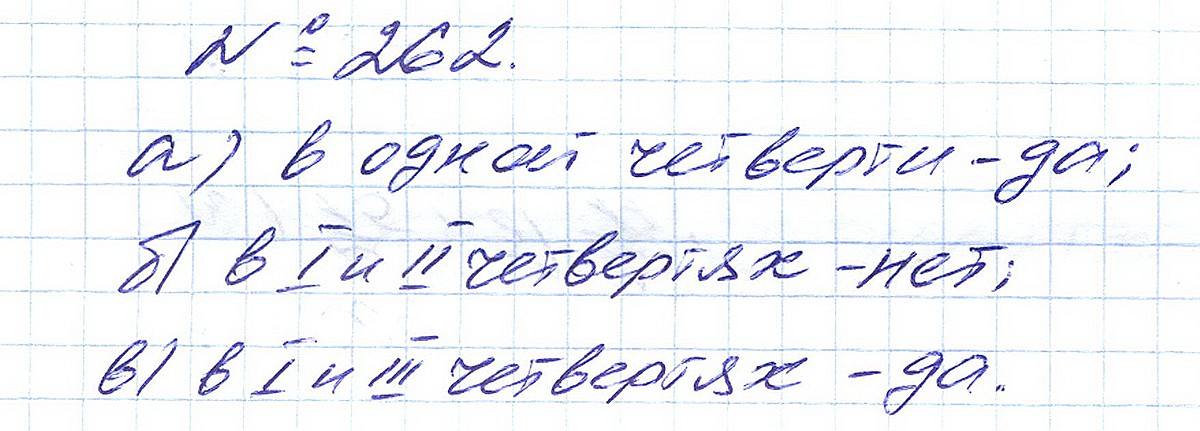 № 262.
а) в одной четверти - да;
б) в I и II четвертях - нет;
в) в I и III четвертях - да.